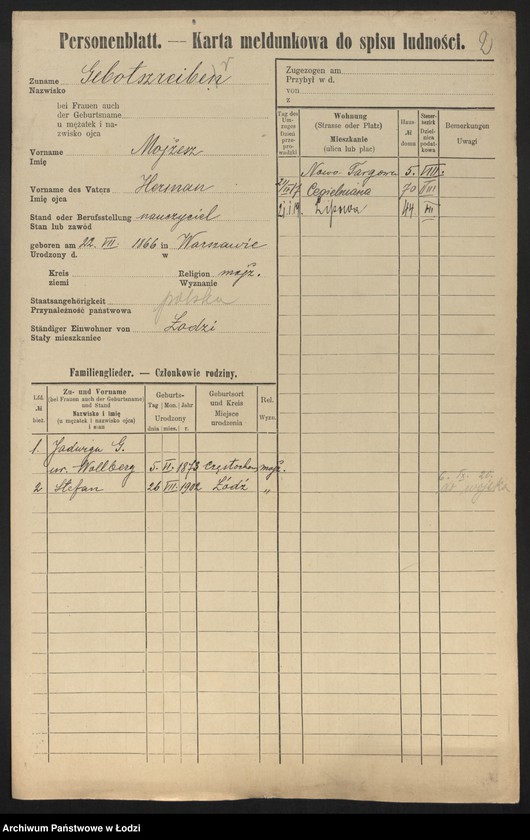 Personenblatt. — Karta meldunkowa do spisu ludności.
2
Zuname Gebotszreiber
Nazwisko
bei Frauen auch
der Geburtsname
u mężatek i na-
zwisko ojca
Vorname Mojżesz
Imię
Vorname des Vaters Herman
Imię ojca
Stand oder Berufsstellung nauczyciel
Stan lub zawód
geboren am 22. VII. 1866 in Warszawie
Urodzony d. w
Kreis Religion mojż.
ziemi Wyznanie
Staatsangehörigkeit polska
Przynależność państwowa
Ständiger Einwohner von Łodzi
Stały mieszkaniec
Zugezogen am
Przybył w d.
von
z
Tag des Um-zuges Dzień prze-prowadzki
Wohnung (Strasse oder Platz) Mieszkanie (ulica lub plac)
Haus-№ domu
Steuer-bezirk Dzielnica podat-kowa
Bemerkungen Uwagi
Nowo Targowa 5. VIII.
Cegielniana 70 VIII
21.I 19. Lipowa 44 III
Familienglieder. — Członkowie rodziny.
Lfd. № bież.
Zu- und Vorname (bei Frauen auch der Geburtsname) und Stand Nazwisko i imię (u mężatek i nazwisko ojca) i stan
Geburts- Tag Mon. Jahr Urodzony dnia mies. r.
Geburtsort und Kreis Miejsce urodzenia
Rel. Wyzn.
1. Jadwiga G.
ur. Wollberg 5. VI. 1873 Częstochowa mojż.
2. Stefan 26 VII. 1902 Łódź "
do wojska
Archiwum Państwowe w Łodzi